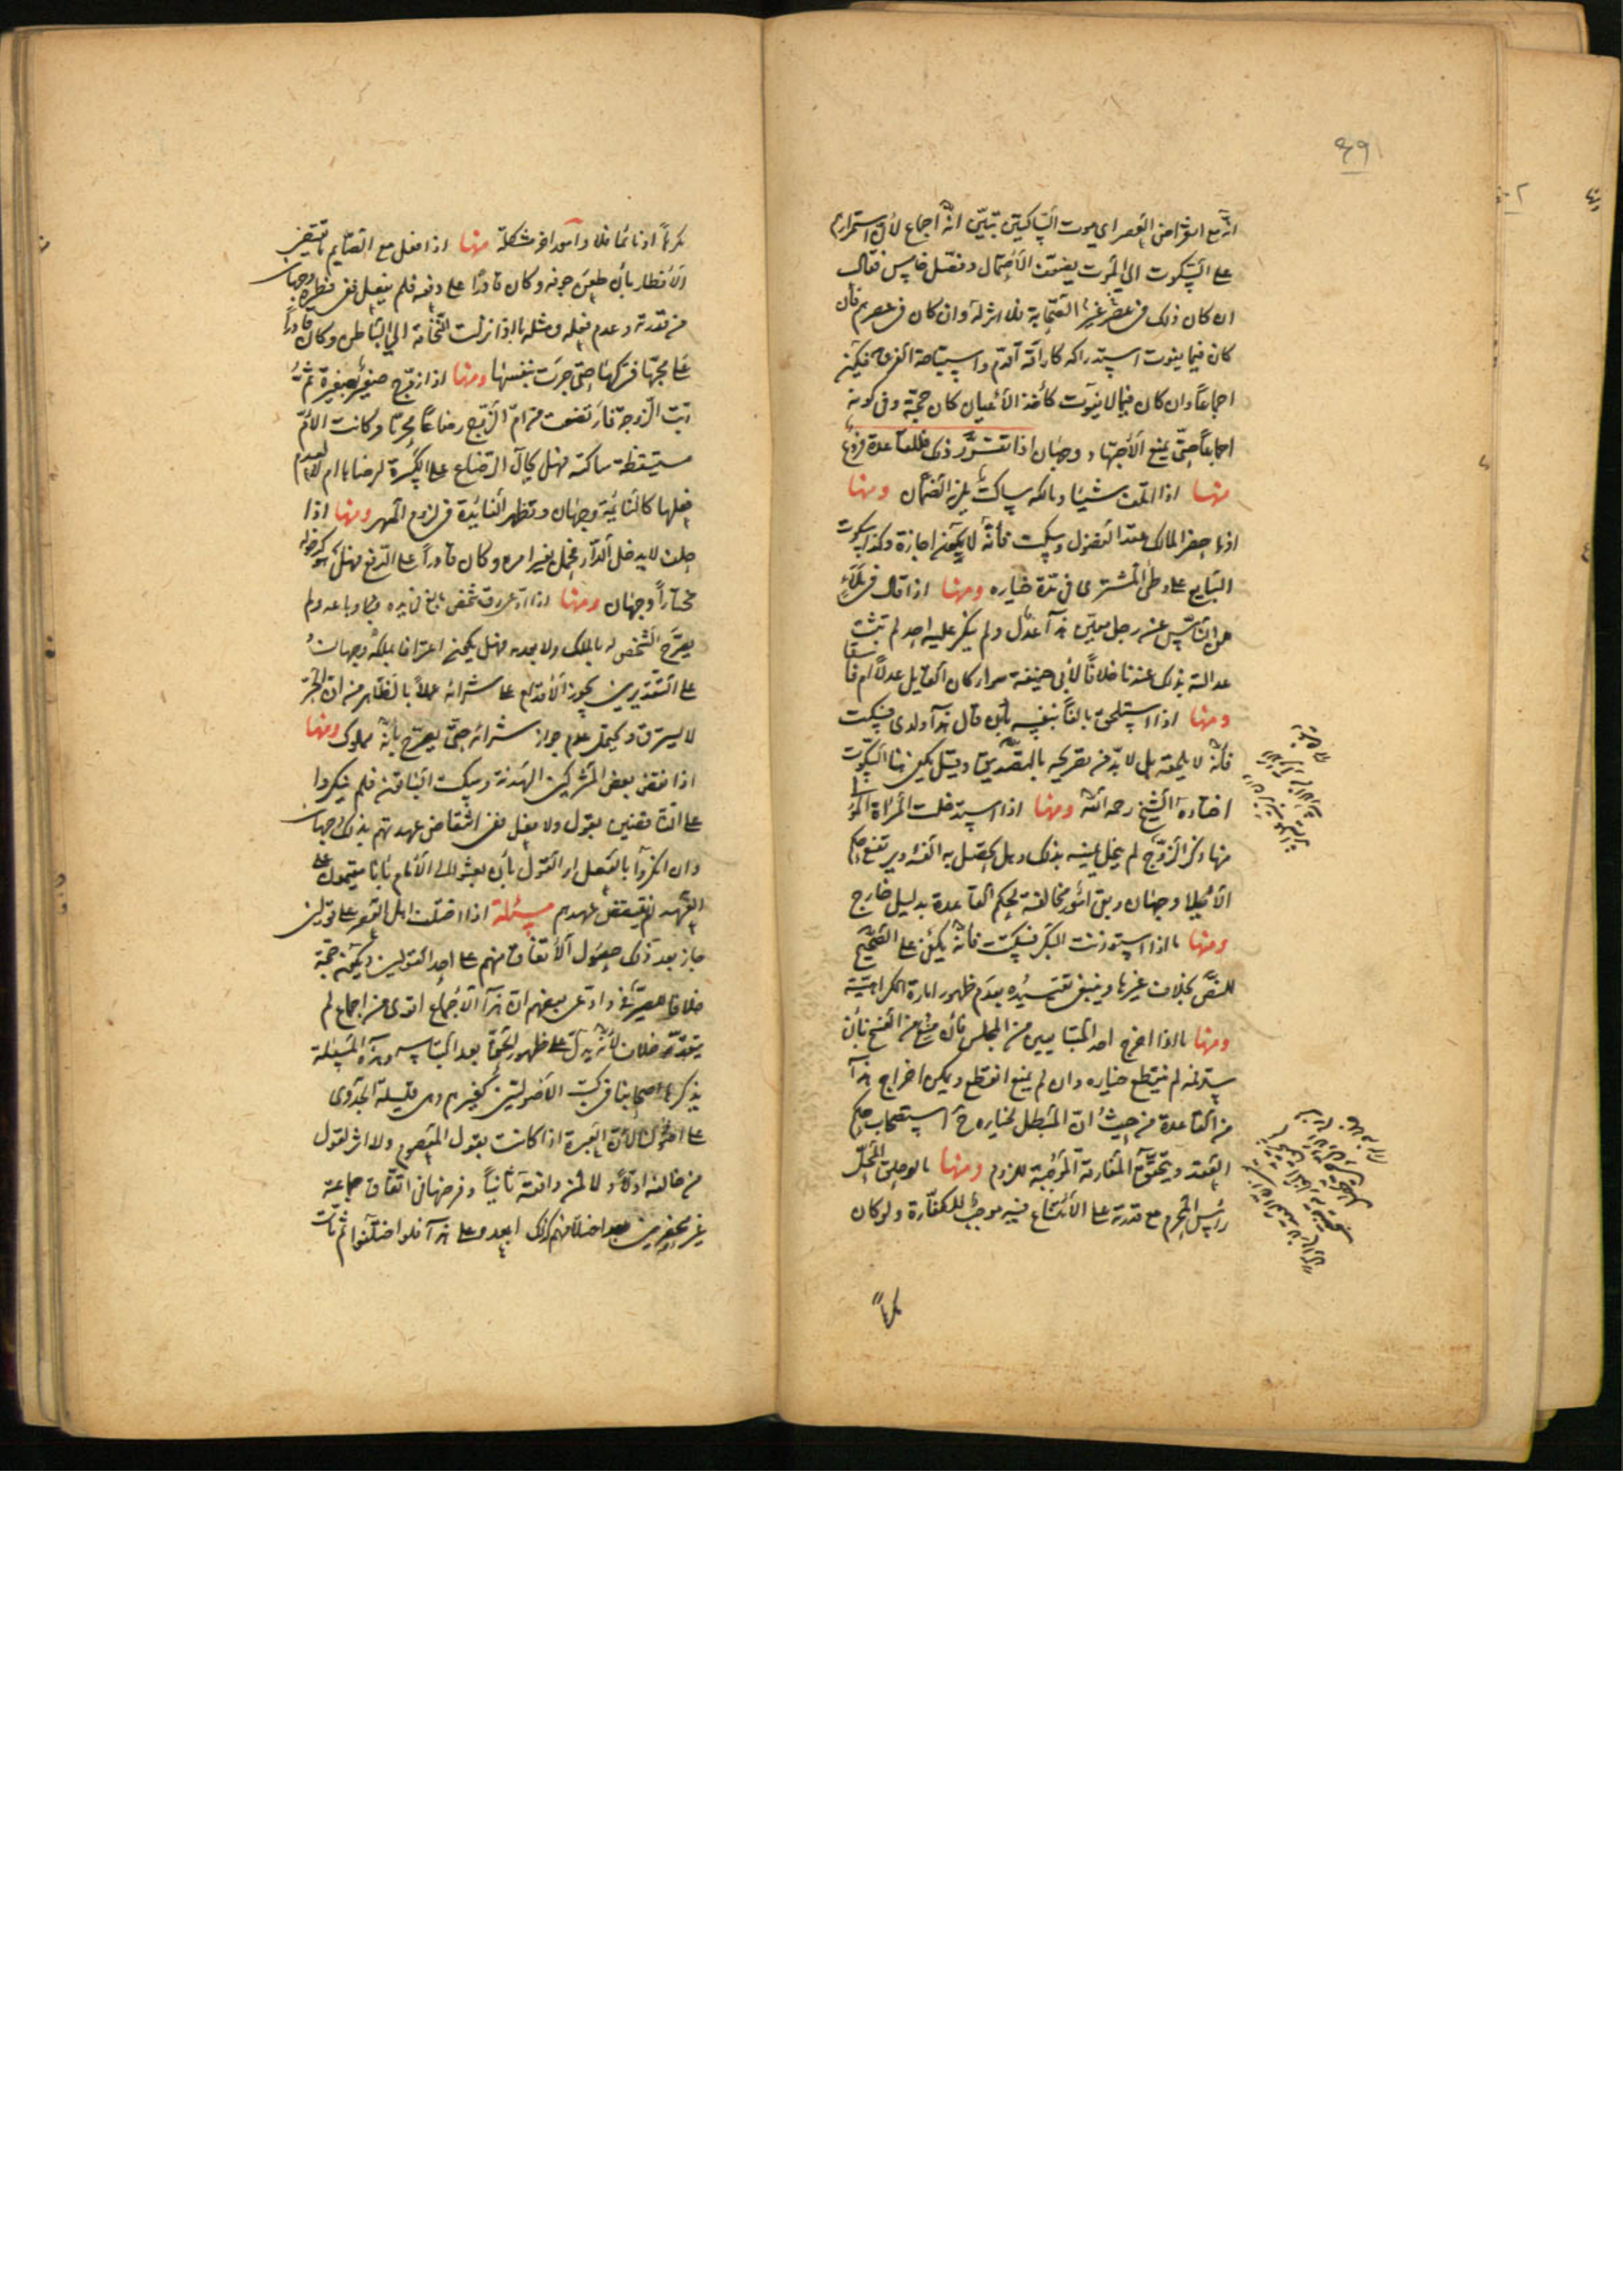 ٤٩
انّه مع انقراض العصر اى موت الساكتين تبيّن انّه اجماع لأنّ استمرارهم
على السكوت الى الموت يضعف الأحتمال وفصّل خامس فقال
ان كان ذلك فى عصر غير الصحابة فلا اثر له وان كان فى عصرهم فان
كان فيما يفوت استدراكه كاراقة الدم واستباحة الفرج فيكون
اجماعا وان كان فيما لا يفوت كأخذ الأعيان كان حجّة وفى كونه
اجماعا حتى يمنع الأجتهاد وجهان اذا تقرّر ذلك فللقاعدة فروع
منها اذا اتلف شيئا ومالكه ساكت يلزمه الضمان ومنها
اذا حضر المالك عقد الفضولى وسكت فانّه لا يكون اجازة وكذا سكوت
البايع على وطى المشترى فى مدّة خياره ومنها اذا قال فى ملاء
من الناس عن رجل معيّن هذا عدل ولم ينكر عليه احد لم تثبت
عدالته بذلك عندنا خلافا لأبى حنيفة سواء كان القايل عدلا ام فاسقا
ومنها اذا استلحق بالغا بنفسه بأن قال هذا ولدى فسكت
فانّه لا يلحقه بل لا بدّ من تصريحه بالتصديق وقيل يكفى هنا السكوت
اختاره الشيخ رحمه الله ومنها اذا استدخلت المرأة المولى
منها ذكر الزوج لم يحل يمينه بذلك وهل يحصل به الفئة ويرتفع حكم
الأيلاء وجهان وبقى امور مخالفة لحكم القاعدة بدليل خارج
ومنها ما اذا استؤذنت البكر فسكتت فانّه يكفى على الصحيح
للنصّ بخلاف غيرها وينبغى تقييده بعدم ظهور امارة الكراهيّة
ومنها ما اذا اخرج احد المتبايعين من المجلس فان منع من الفسخ بأن
سدّ فمه لم ينقطع خياره وان لم يمنع انقطع ويمكن اخراج هذا
من القاعدة من حيث انّ المبطل لخياره ح استصحاب حكم
العقد وتحقّق المفارقة الموجبة للزوم ومنها ما لو حلق المحلّ
رأس المحرم مع قدرته على الأمتناع فيه موجب للكفّارة ولو كان
مكرها
مكرها او نائما فلا وامور اخر مشكلة منها اذا فعل مع الصايم ما يقتضى
الأفطار بأن طعن جوفه وكان قادرا على دفعه فلم يفعل ففى فطره وجهان
من قدرته وعدم فعله ومثله ما اذا نزلت النخامة الى الباطن وكان قادرا
على مجّها فتركها حتى جرت بنفسها ومنها اذا ازوج صغير بصغيرة ثم
دبّت الزوجة فارتضعت من امّ الزوج رضاعا محرّما وكانت الامّ
مستيقظة ساكتة فهل يحال الرضاع على الكبيرة لرضاها ام لا لعدم
فعلها كالنائمة وجهان وتظهر الفائدة فى لزوم المهر ومنها اذا
حلف لا يدخل الدار فحمل بغير امره وكان قادرا على الدفع فهل هو كدخوله
مختارا وجهان ومنها اذا ادّعى رقّ شخص بالغ فى يده وباعه ولم
يصرّح الشخص له بالملك ولا بعدمه فهل يكون اعترافا بملكه وجهان
على التقديرين يجوز الأقدام على شرائه عملا بالظاهر من انّ الحرّ
لا يسترق ويحتمل عدم جواز شرائه حتى يصرّح بأنّه مملوك ومنها
اذا نقض بعض المشركين الهدنة وسكت الباقون فلم ينكروا
على الناقضين بقول ولا فعل ففى انتقاض عهدتهم بذلك وجهان
وان انكروا بالفعل او القول بأن بعثوا الى الأمام بانّا مقيمون على
العهد لم ينتقض عهدهم مسئلة اذا اختلف اهل العصر على قولين
جاز بعد ذلك حصول الأتفاق منهم على احد القولين ويكون حجّة
خلافا للصيرفى وادّعى بعضهم انّ هذا الأجماع اقوى من اجماع لم
يتقدّمه خلاف لأنّه يدلّ على ظهور الحقّ بعد التباسه وهذه المسئلة
يذكرها اصحابنا فى كتب الأصوليّين كغيرهم وهى قليلة الجدوى
على اصولنا لأنّ العبرة اذا كانت بقول المعصوم ولا اثر لقول
من خالفه اوّلا ولا لمن وافقه ثانيا وفرضها فى اتّفاق جماعة
غير محصورين بعد اختلافهم كذلك ابعد وعلى هذا فلو اختلفوا ثم ماتت